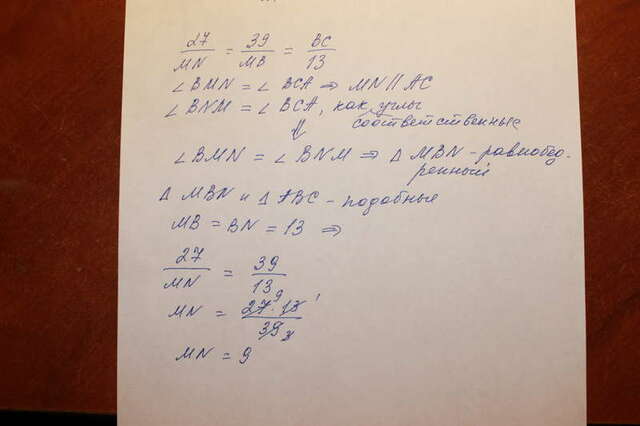 27/MN = 39/MB = BC/13
∠BMN = ∠BCA ⇒ MN || AC
∠BNM = ∠BCA, как углы
соответственные
⇓
∠BMN = ∠BNM ⇒ Δ MBN - равнобед-
ренный
Δ MBN и Δ ABC - подобные
MB = BN = 13 ⇒
27/MN = 39/13
MN = 27⁹ · 13¹/39₃
MN = 9